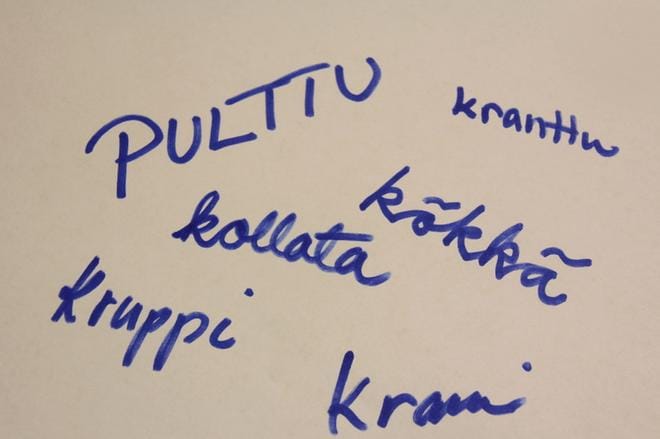 PULTTU
kranttu
kökkä
kollata
Kruppi